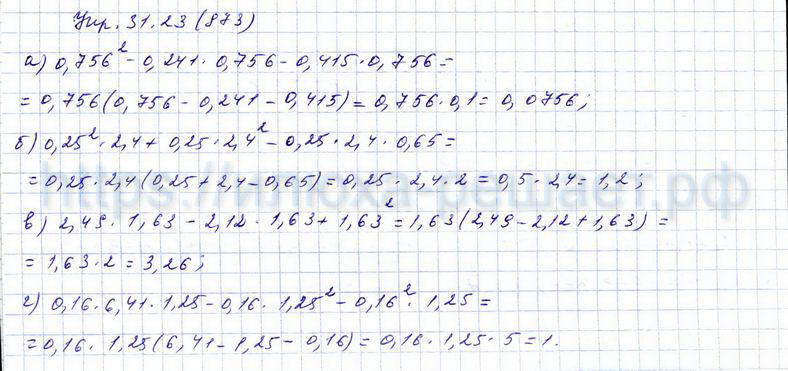 Упр. 31.23 (873)
а) 0,756² - 0,241 · 0,756 - 0,415 · 0,756 =
= 0,756(0,756 - 0,241 - 0,415) = 0,756 · 0,1 = 0,0756;
б) 0,25² · 2,4 + 0,25 · 2,4² - 0,25 · 2,4 · 0,65 =
= 0,25 · 2,4(0,25 + 2,4 - 0,65) = 0,25 · 2,4 · 2 = 0,5 · 2,4 = 1,2;
https://илюха-решает.рф
в) 2,49 · 1,63 - 2,12 · 1,63 + 1,63² = 1,63(2,49 - 2,12 + 1,63) =
= 1,63 · 2 = 3,26;
г) 0,16 · 6,41 · 1,25 - 0,16 · 1,25² - 0,16² · 1,25 =
= 0,16 · 1,25(6,41 - 1,25 - 0,16) = 0,16 · 1,25 · 5 = 1.